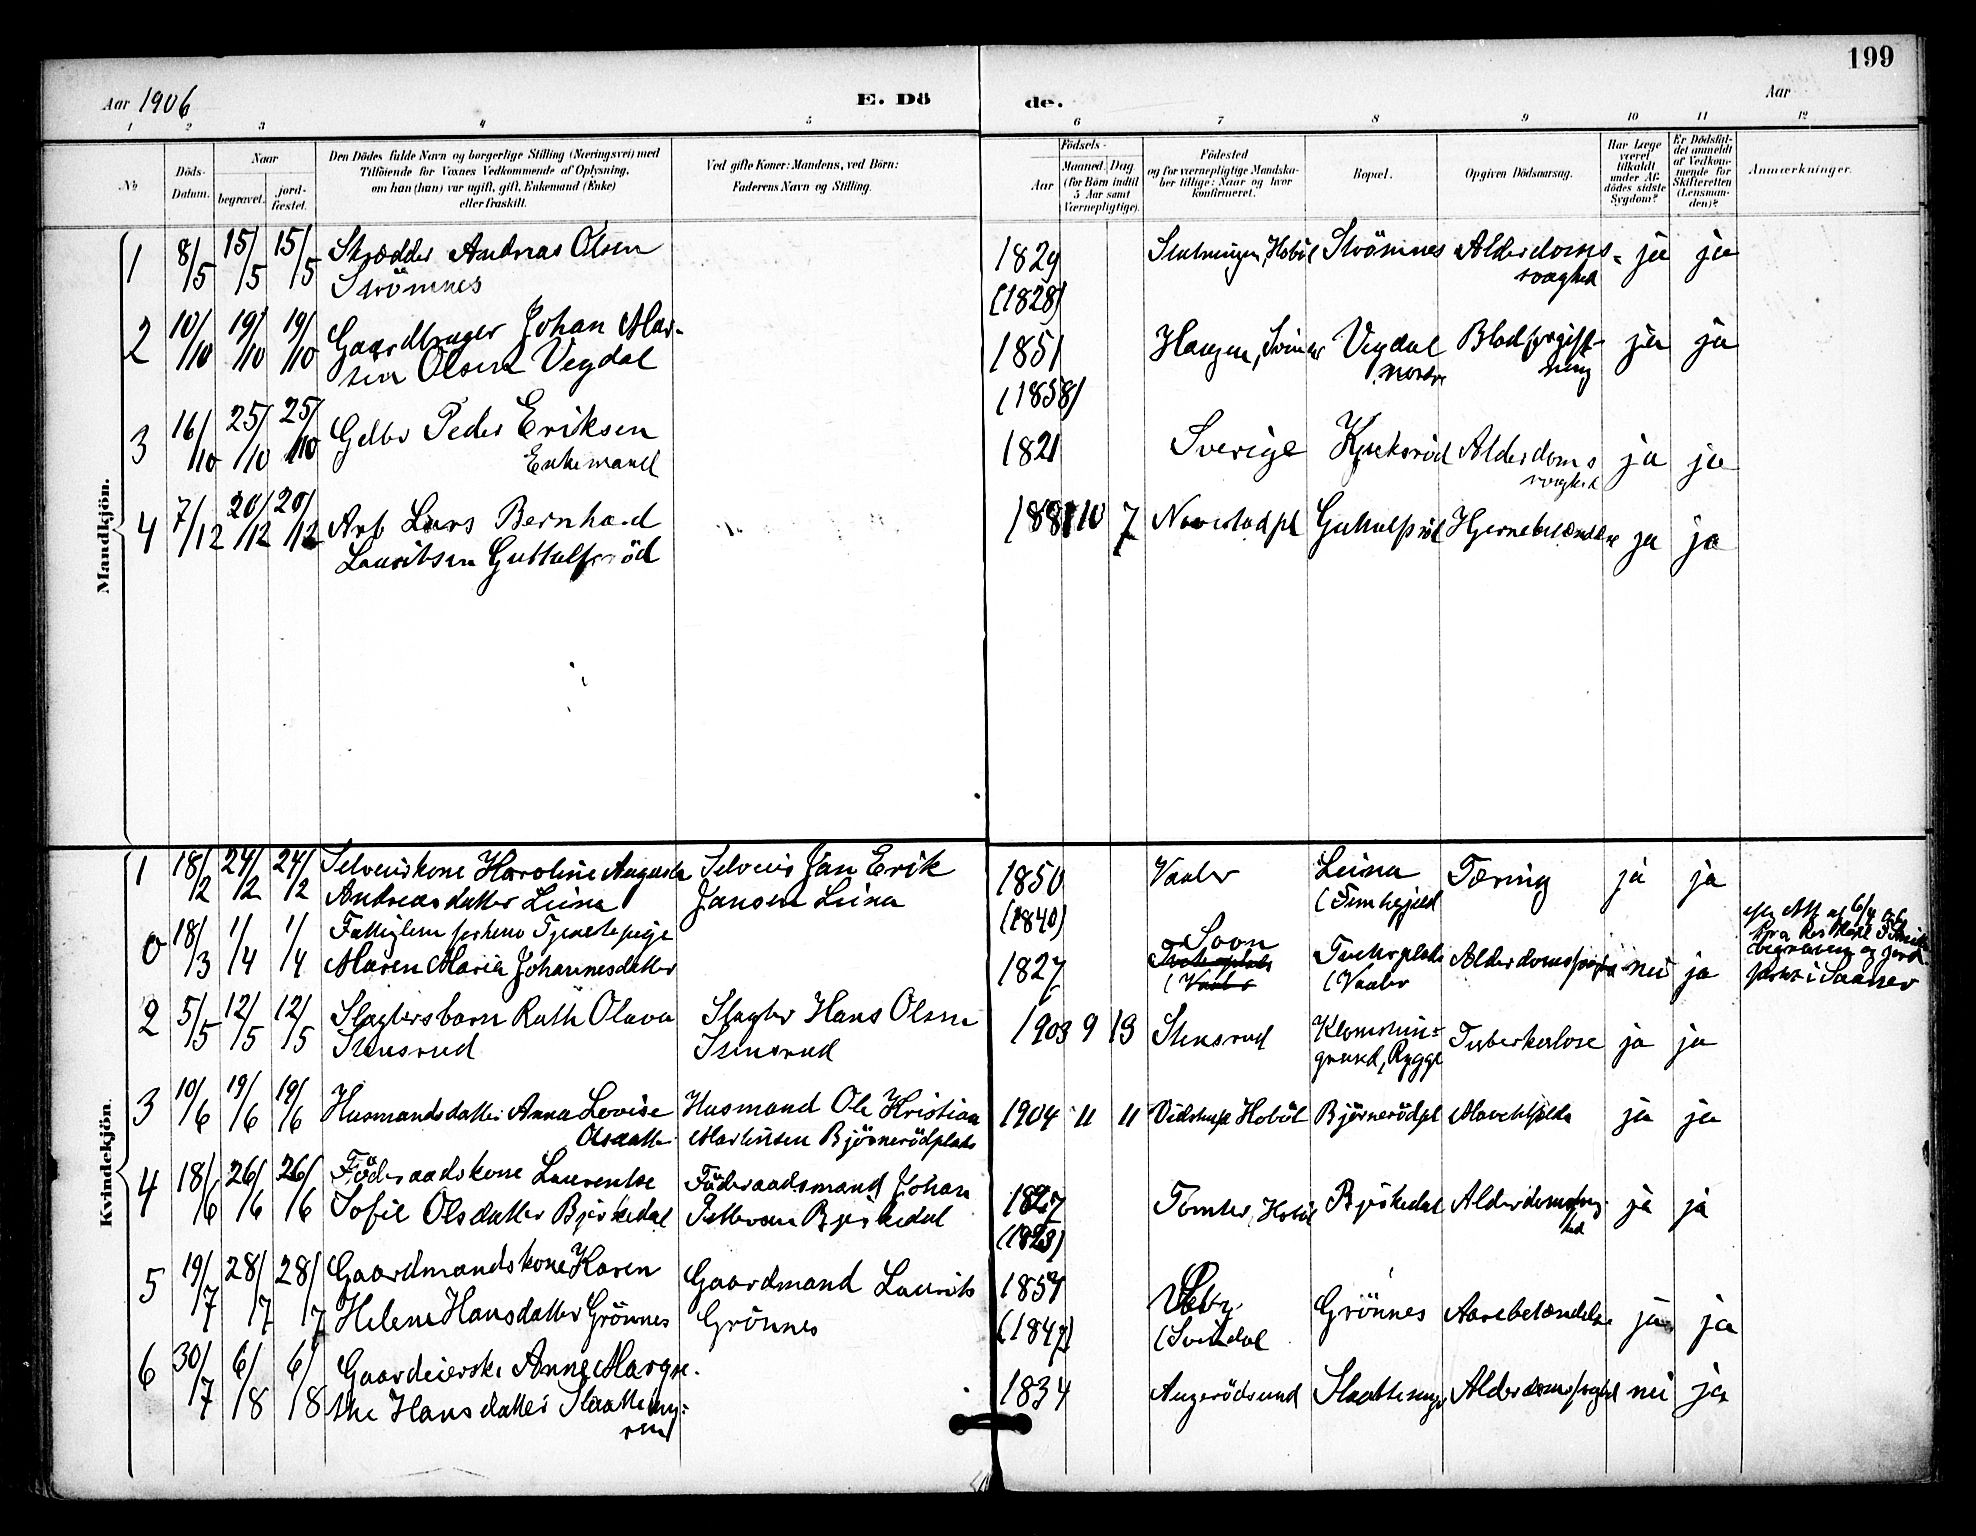 199
Aar 1906
E. Döde.
Aar
1 2 3 4 5 6 7 8 9 10 11 12
No
Döds-Datum.
Naar
begravet.
jordfæstet.
Den Dödes fulde Navn og borgerlige Stilling (Næringsvei) med
Tilföiende for Voxnes Vedkommende af Oplysning,
om han (hun) var ugift, gift, Enkemand (Enke)
eller fraskilt.
Ved gifte Koner: Mandens, ved Börn:
Faderens Navn og Stilling.
Födsels-
Aar
Maaned. Dag
(for Börn indtil
5 Aar samt
Værnepligtige).
Födested
og for værnepligtige Mandska-
ber tillige: Naar og hvor
konfirmeret.
Bopæl.
Opgiven Dödsaarsag.
Har Læge
været
tilkaldt
under Af-
dödes sidste
Sygdom?
Er Dödsfal-
det anmeldt
af Vedkom-
mende for
Skifteretten
(Lensman-
den)?
Anmærkninger.
Mandkjön.
1 8/5 15/5 15/5 Skrædder Andreas Olsen
Strömnes
1829
(1828)
Hoböl Strömnes Alderdoms-
svaghed
ja ja
2 10/10 19/10 19/10 Gaardbruger Johan Mar-
Olsen Vegdal
1851
(1858)
Haugen, Vegdal
nordre
Blodforgift-
ning
ja ja
3 16/10 25/10 25/10 Peder Eriksen
Enkemand
1821 Sverige Alderdoms
svaghed
ja ja
4 7/12 20/12 20/12 Arb Lars Bernhard
Lauritsen Guttulfsröd
10 7 Hjernebetændelse ja ja
Kvindekjön.
1 18/2 24/2 24/2 Selveierkone Karoline Augusta
Andreasdatter Leina
Selveier Jan Erik
Jansen Leina
1850
(1840)
Vaaler Leina
Tæring ja ja
0 18/3 1/4 1/4 Fattiglem forhenv Tjenestepige
Maren Maria Johannesdatter
1827
Soon
Tveterplads
(Vaaler
Tveterplads
(Vaaler
nei ja
2 5/5 12/5 12/5 Slagtersbarn Ruth Olava
Stensrud
Slagter Hans Olsen
Stensrud
1903 9 13 Stensrud
grund, Rygge
Tuberkulose ja ja
3 10/6 19/6 19/6 Husmandsdatter Anna Lovise
Olsdatter
Husmand Ole Kristian
Martinsen Björnerödplads
1904 11 11 Hoböl Björnerödpl ja ja
4 18/6 26/6 26/6 Föderaadskone Laurentse
Sofie Olsdatter Björkedal
Föderaadsmand Johan
Pettersen Björkedal
1827
(1823)
Tomter, Hoböl Björkedal ja ja
5 19/7 28/7 28/7 Gaardmandskone Karen
Helene Hansdatter Grönnes
Gaardmand Laurits
Grönnes
1857
(1847)
(Svindal
Grönnes Aarebetændelse ja ja
6 30/7 6/8 6/8 Gaardeierske Anne Margre-
the Hansdatter Slaattemy-
ren
1834 nei ja